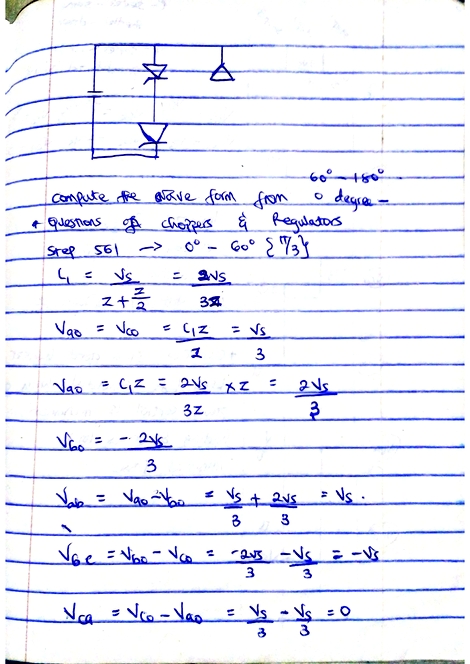 60° - 180°
compute the wave form from 0 degree -
* questions of choppers & Regulators
Step 561 → 0° - 60° {π/3}
i₁ = Vs / (Z + Z/2) = 2Vs / 3Z
Vao = Vco = i₁Z / 2 = Vs / 3
Vao = i₁Z = 2Vs / 3Z × Z = 2Vs / 3
Vbo = - 2Vs / 3
Vab = Vao - Vbo = Vs/3 + 2Vs/3 = Vs.
Vbc = Vbo - Vco = -2Vs/3 - Vs/3 = -Vs
Vca = Vco - Vao = Vs/3 - Vs/3 = 0